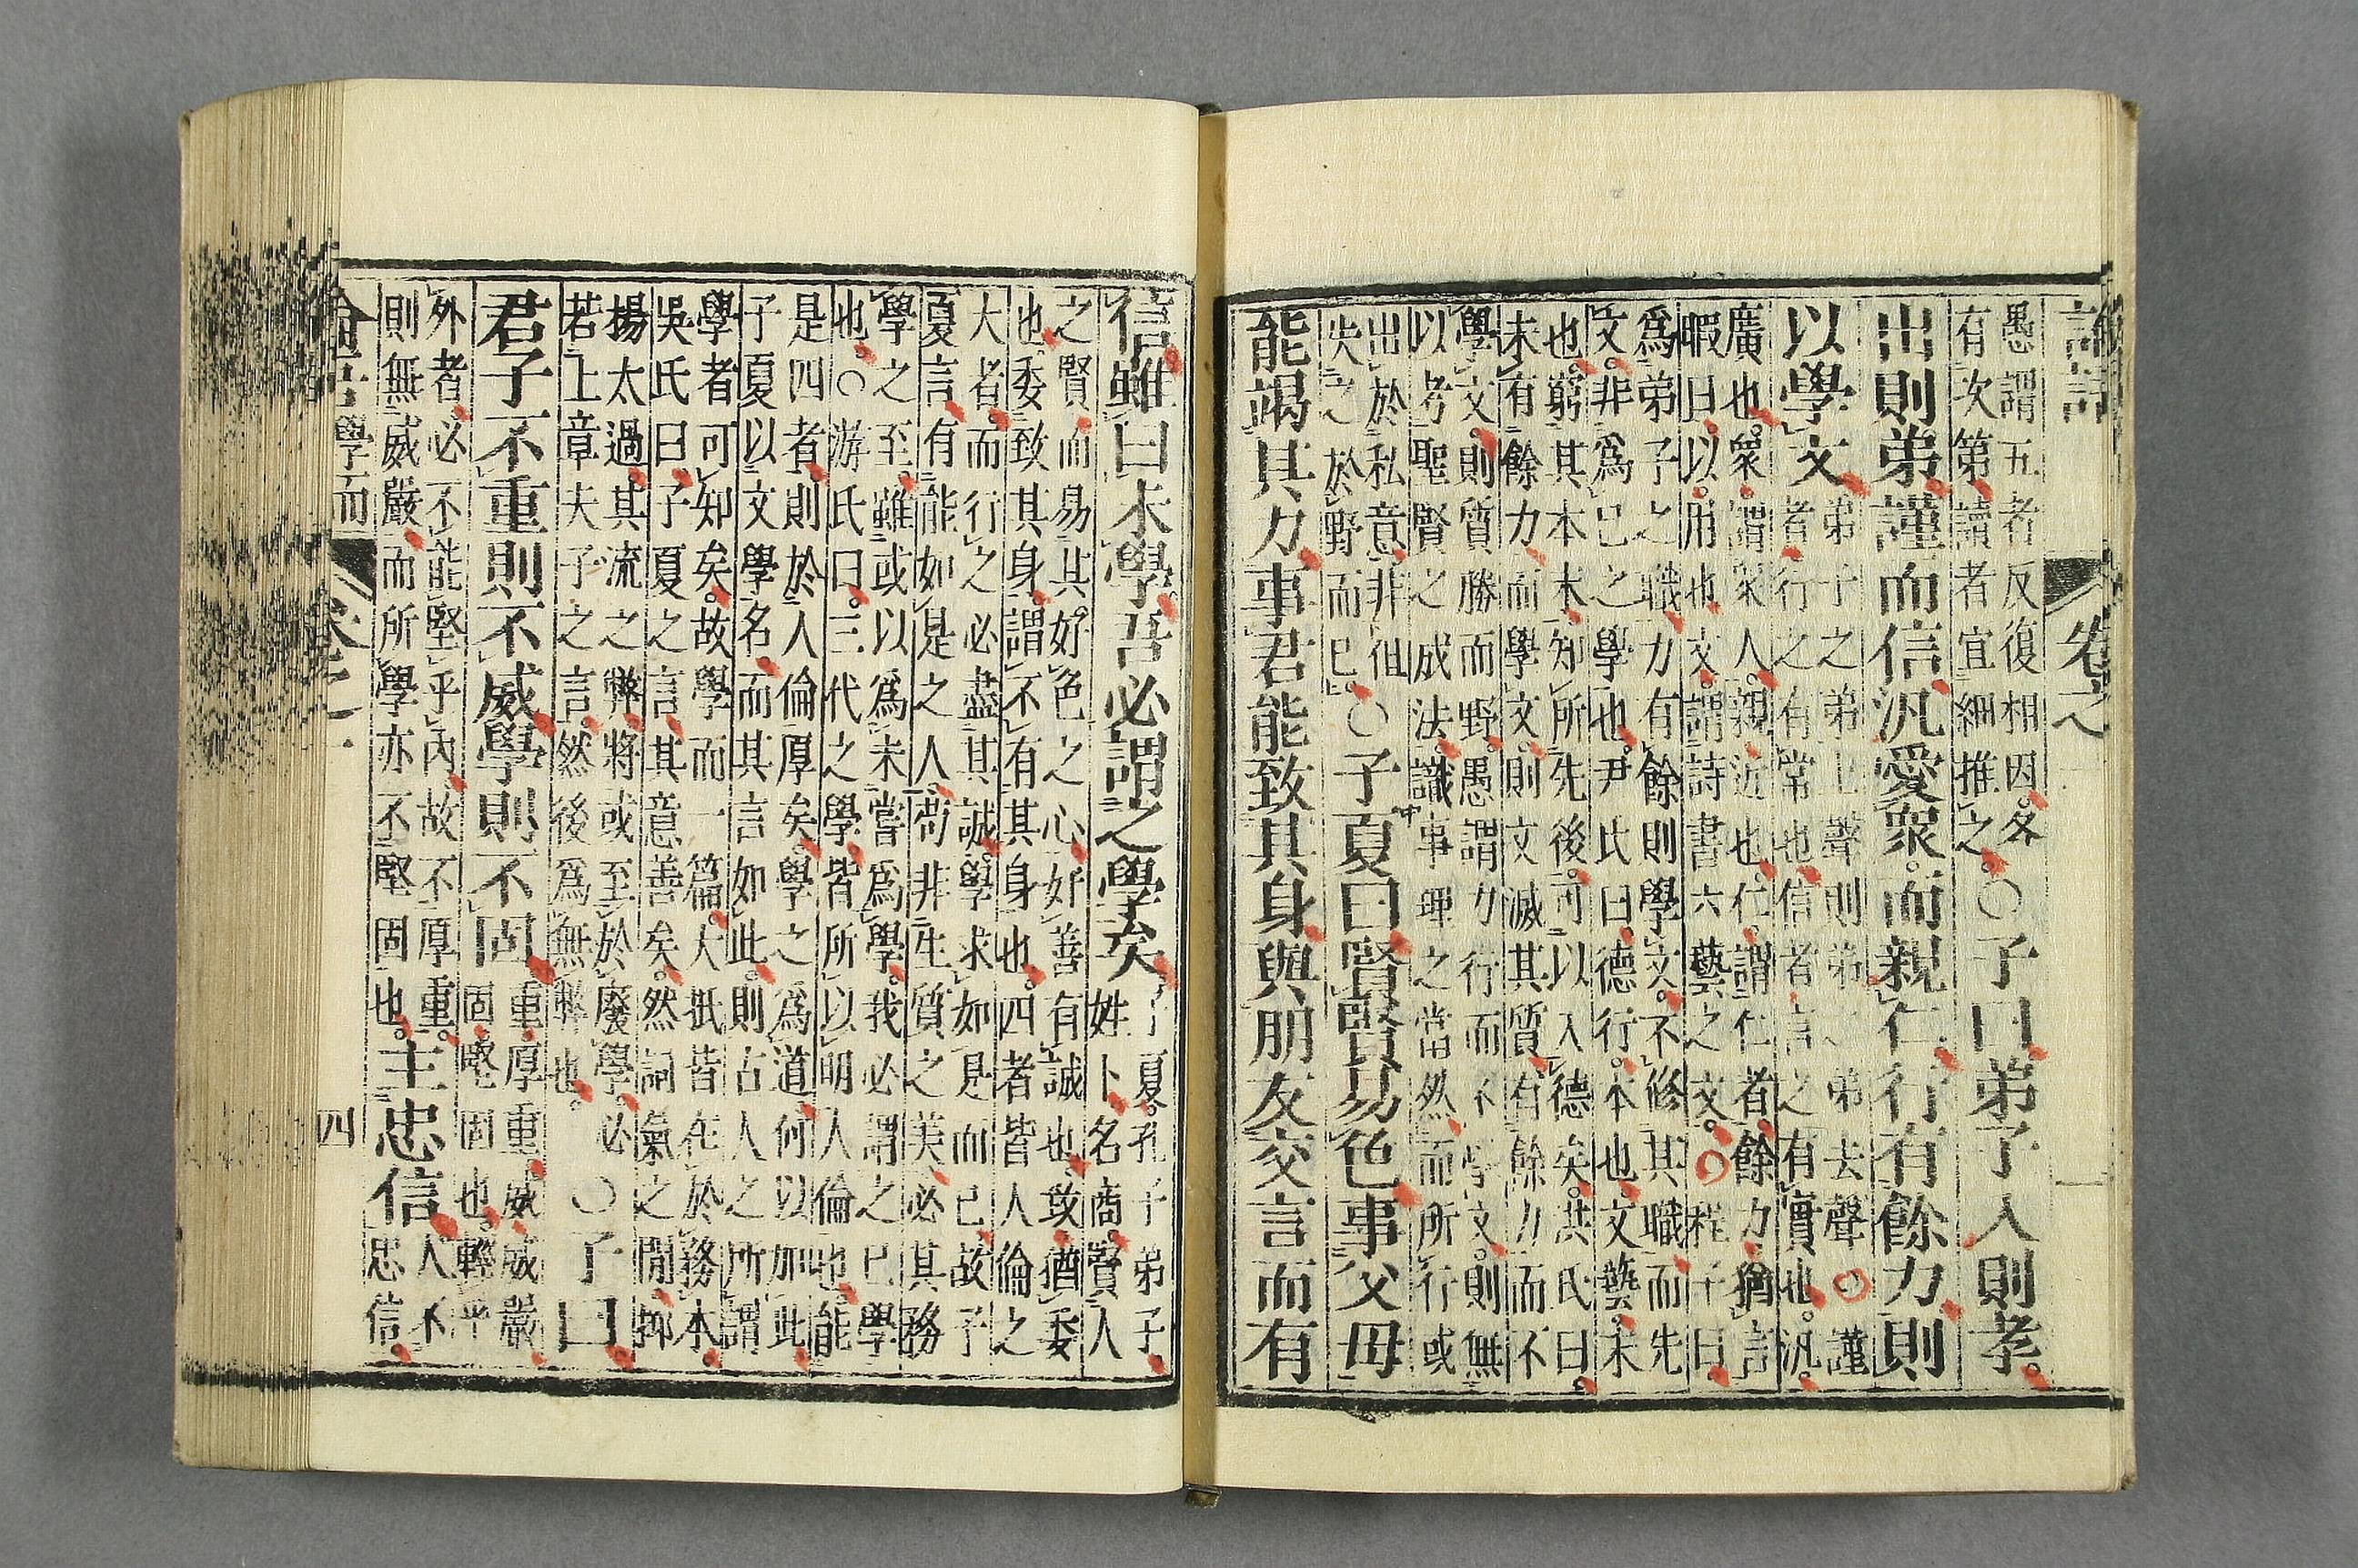 卷之一
愚謂五者反復相因各
有次第讀者宜細推之○子曰弟子入則孝
出則弟謹而信汎愛衆而親仁行有餘力則
以學文弟子之弟上聲則弟之弟去聲○謹
者行之有常也信者言之有實也汎
廣也衆謂衆人親近也仁謂仁者餘力猶言
暇日以用也文謂詩書六藝之文○程子曰
爲弟子之職力有餘則學文不修其職而先
文非爲己之學也尹氏曰德行本也文藝末
也窮其本末知所先後可以入德矣洪氏曰
未有餘力而學文則文滅其質有餘力而不
學文則質勝而野愚謂力行而不學文則無
以考聖賢之成法識事理之當然而所行或
出於私意非但
失之於野而已○子夏曰賢賢易色事父母
能竭其力事君能致其身與朋友交言而有
信雖曰未學吾必謂之學矣子夏孔子弟子
姓卜名商賢人
之賢而易其好色之心好善有誠也致猶委
也委致其身謂不有其身也四者皆人倫之
大者而行之必盡其誠學求如是而已故子
夏言有能如是之人苟非生質之美必其務
學之至雖或以爲未嘗爲學我必謂之已學
也○游氏曰三代之學皆所以明人倫也能
是四者則於人倫厚矣學之爲道何以加此
子夏以文學名而其言如此則古人之所謂
學者可知矣故學而一篇大抵皆在於務本
吳氏曰子夏之言其意善矣然詞氣之閒抑
揚太過其流之弊將或至於廢學必
若上章夫子之言然後爲無弊也○子曰
君子不重則不威學則不固重厚重威威嚴
固堅固也輕乎
外者必不能堅乎內故不厚重
則無威嚴而所學亦不堅固也主忠信人不
忠信
論語 學而 卷之一 四